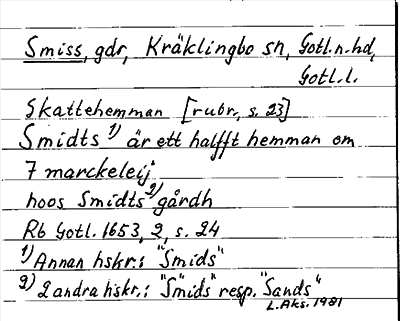 Smiss, gdr, Kräklingbo sn, Gotl.n.hd,
Gotl.l.
Skattehemman [rubr., s. 23]
Smidts 1) är ett halfft hemman om
7 marckeleij
hoos Smidts 2) gårdh
Rb Gotl. 1653, 2, s. 24
1) Annan hskr.: "Smids"
2) 2 andra hskr.: "Smids" resp. "Sands"
L.Aks. 1981